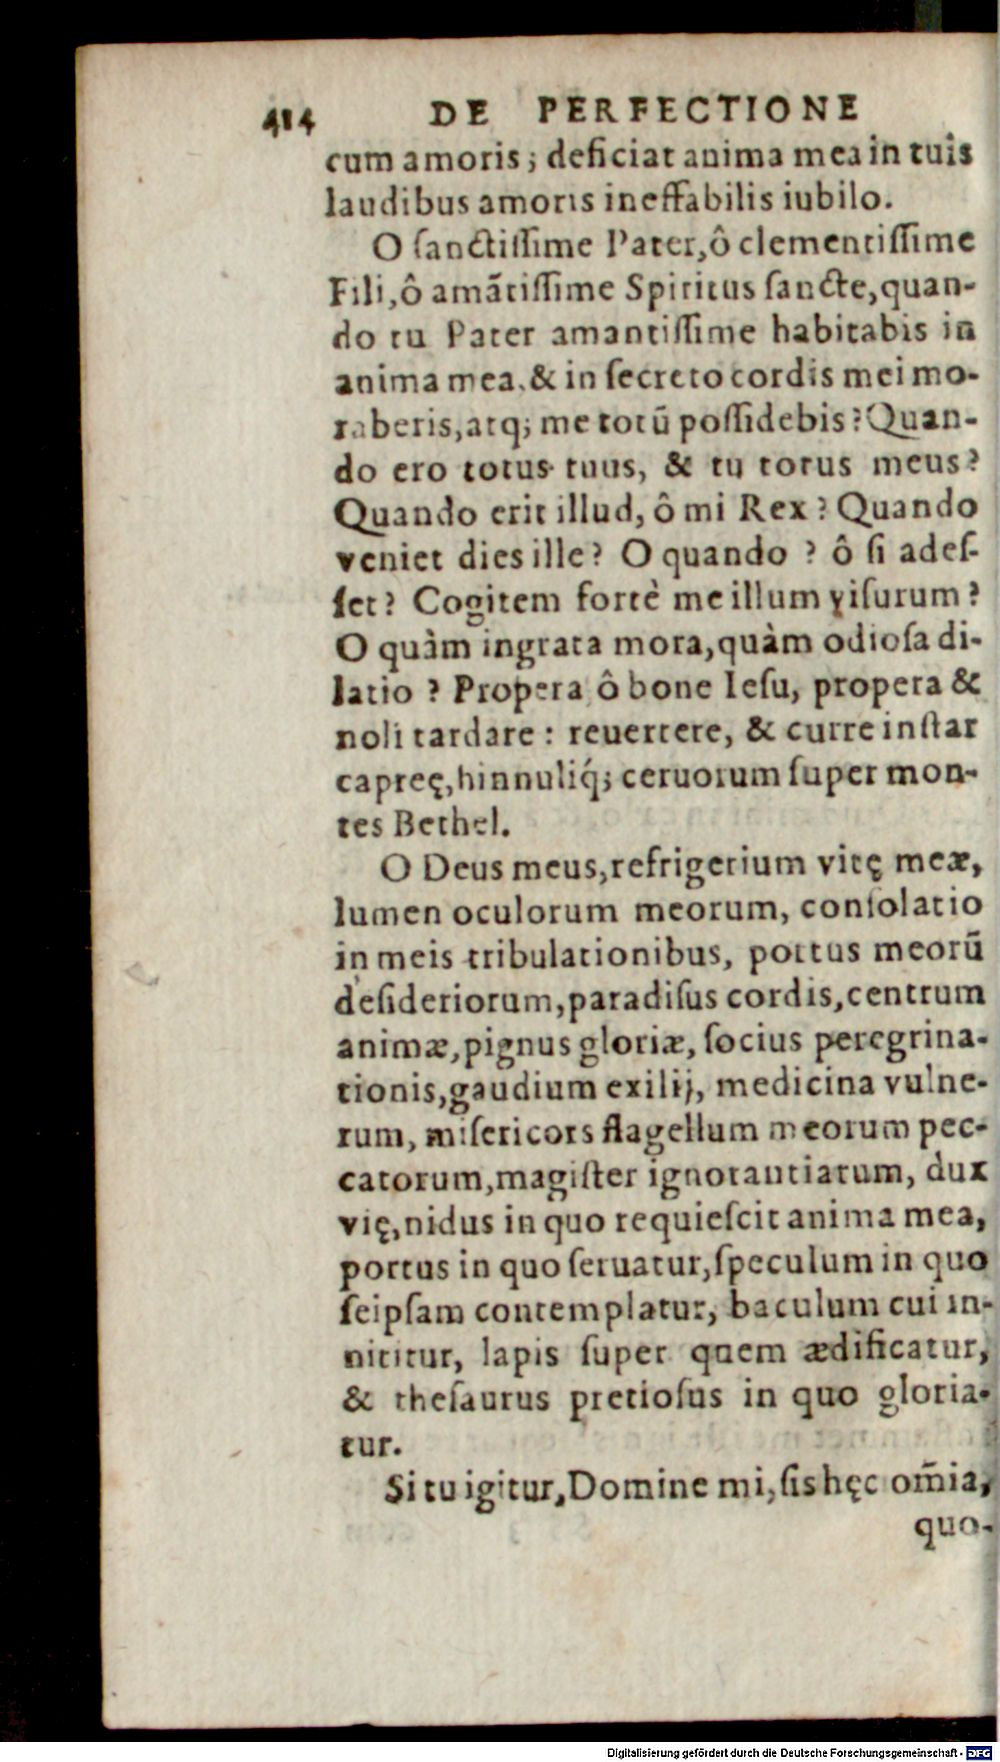 414 DE PERFECTIONE
cum amoris; deficiat anima mea in tuis
laudibus amoris ineffabilis iubilo.
O ſanctiſſime Pater, ô clementiſſime
Fili, ô amãtiſſime Spiritus ſancte, quan-
do tu Pater amantiſſime habitabis in
anima mea, & in ſecreto cordis mei mo-
raberis, atq; me totũ poſſidebis? Quan-
do ero totus tuus, & tu totus meus?
Quando erit illud, ô mi Rex? Quando
veniet dies ille? O quando? ô ſi adeſ-
ſet? Cogitem fortè me illum viſurum?
O quàm ingrata mora, quàm odioſa di-
latio? Propera ô bone Ieſu, propera &
noli tardare: reuertere, & curre inſtar
capreę, hinnuliq́; ceruorum ſuper mon-
tes Bethel.
O Deus meus, refrigerium vitę meæ,
lumen oculorum meorum, conſolatio
in meis tribulationibus, portus meorũ
deſideriorum, paradiſus cordis, centrum
animæ, pignus gloriæ, ſocius peregrina-
tionis, gaudium exilij, medicina vulne-
rum, miſericors flagellum meorum pec-
catorum, magiſter ignorantiarum, dux
vię, nidus in quo requieſcit anima mea,
portus in quo ſeruatur, ſpeculum in quo
ſeipſam contemplatur, baculum cui in-
nititur, lapis ſuper quem ædificatur,
& theſaurus pretioſus in quo gloria-
tur.
Si tu igitur, Domine mi, ſis hęc om̃ia,
quo-
Digitalisierung gefördert durch die Deutsche Forschungsgemeinschaft - DFG